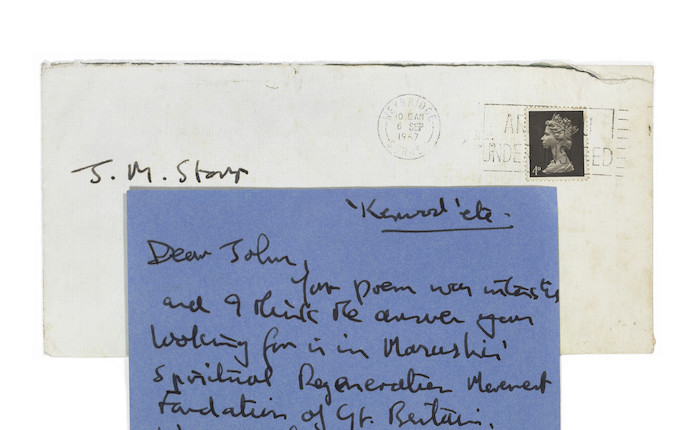 WEYBRIDGE
10 AM
6 SEP
1967
4D
J. M. Starr
'Kenwood' etc.
Dear John,
Your poem was interesting
and I think the answer your
looking for is in Maraishis'
Spiritual Regeneration Movement
Fondation of Gt. Britain.